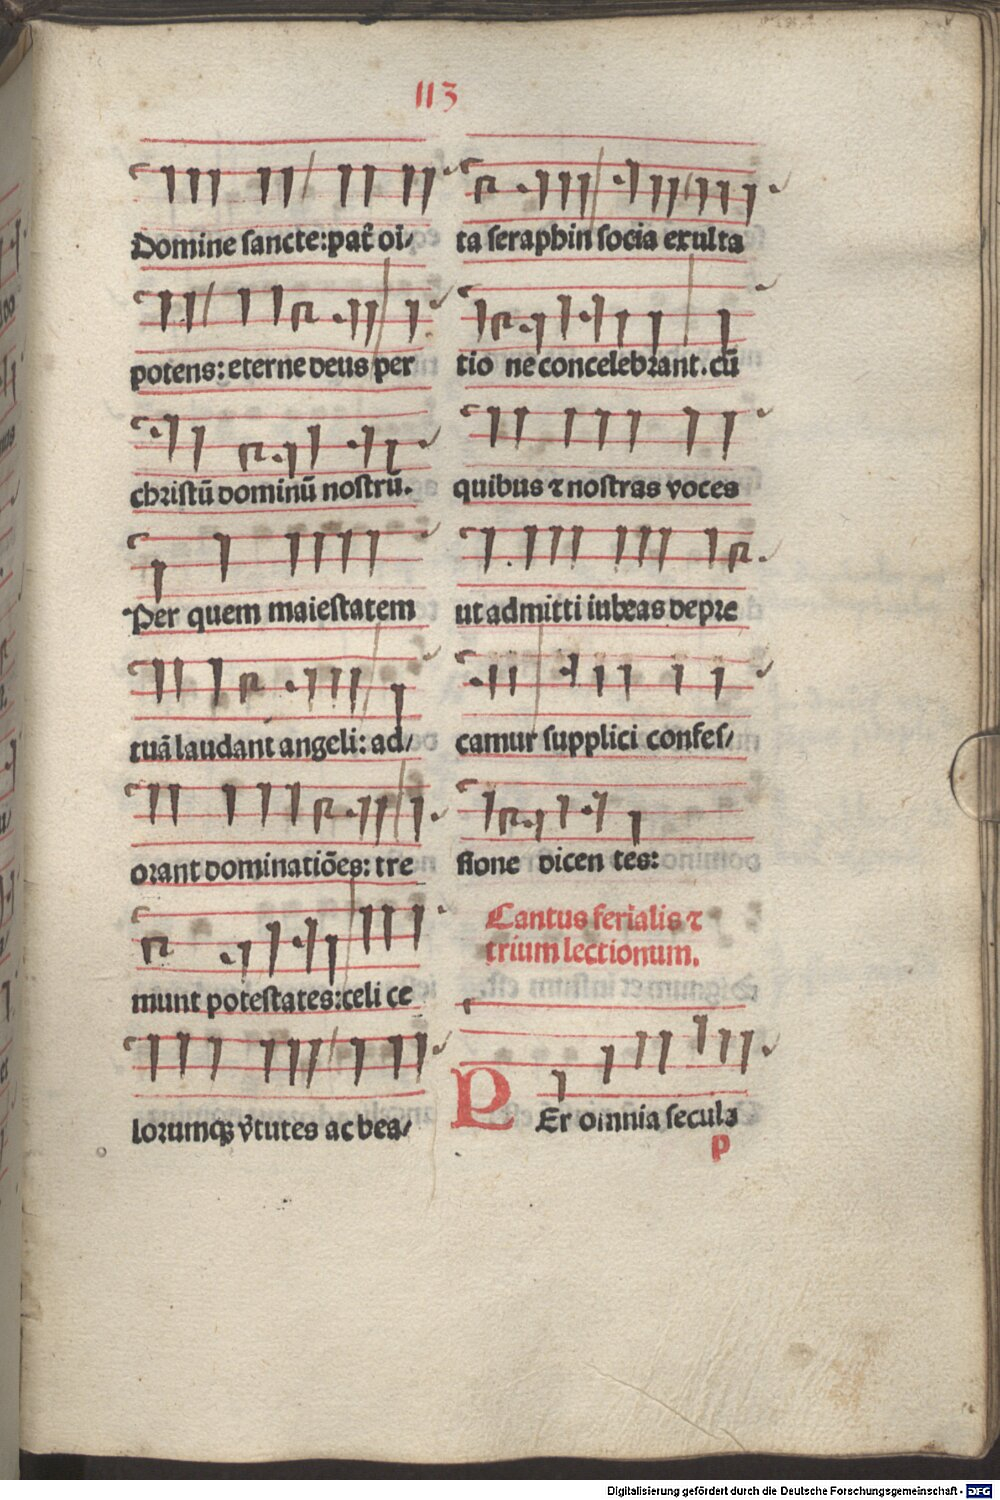 113
Domine sancte:pat̃ oĩ/
potens: eterne deus per
christũ dominũ nostrũ.
Per quem maiestatem
tuã laudant angeli: ad/
orant dominatiões: tre
munt potestates:celi ce
lorumqꝫ v̾tutes ac bea/
ta seraphin socia exulta
tio ne concelebrant. cũ
quibus ⁊ nostras voces
ut admitti iubeas depre
camur supplici confes/
sione dicen tes:
Cantus ferialis ⁊
trium lectionum.
PEr omnia secula
p
Digitalisierung gefördert durch die Deutsche Forschungsgemeinschaft - DFG